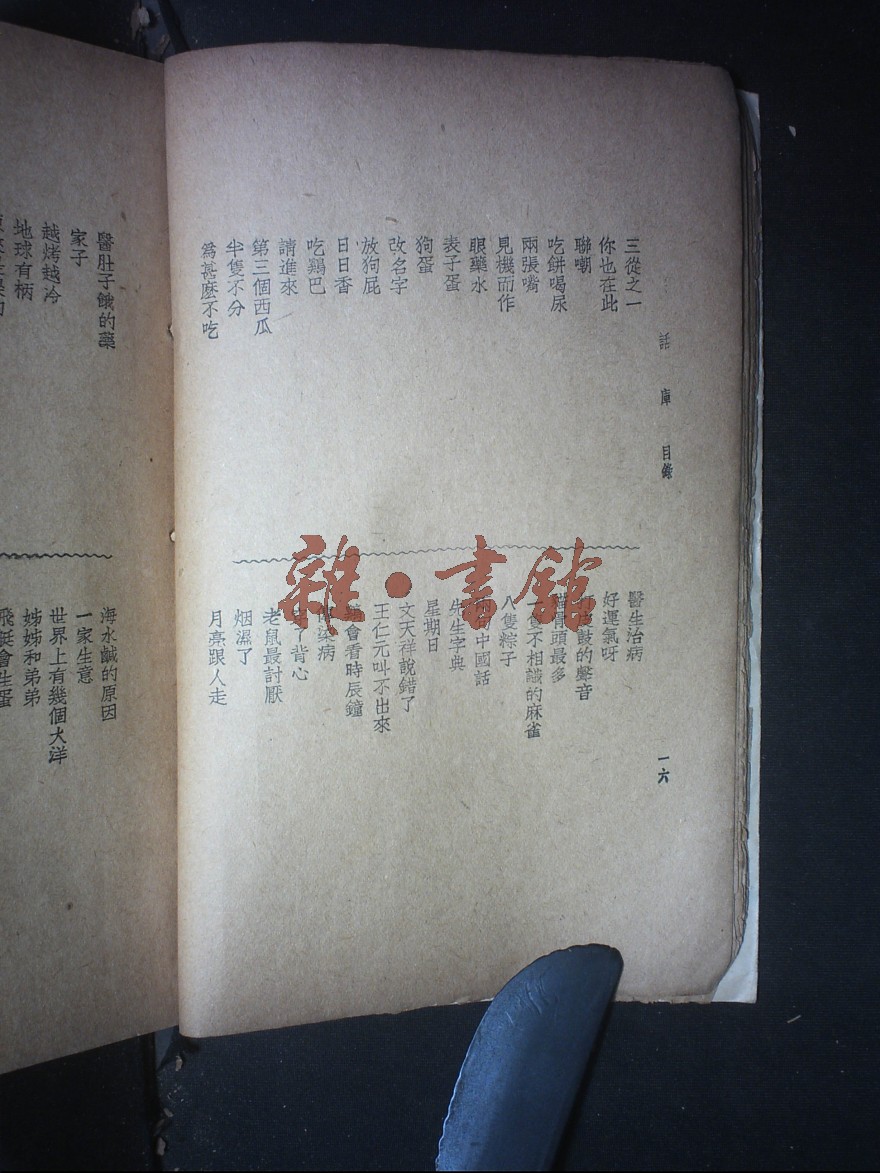 話庫 目錄
一六
三從之一
你也在此
聯嘲
吃餅喝尿
兩張嘴
見機而作
眼藥水
表子蛋
狗蛋
改名字
放狗屁
日日香
吃鷄巴
請進來
第三個西瓜
半隻不分
爲甚麽不吃
醫生治病
好運氣呀
皮鼓的聲音
骨頭最多
隻不相識的麻雀
八隻粽子
句中國話
先生字典
星期日
文天祥說錯了
王仁元叫不出來
會看時辰鐘
病
了背心
老鼠最討厭
烟濕了
月亮跟人走
醫肚子餓的藥
家子
越烤越冷
地球有柄
海水鹹的原因
一家生意
世界上有幾個大洋
姊姊和弟弟
飛艇會生蛋
雜·書館